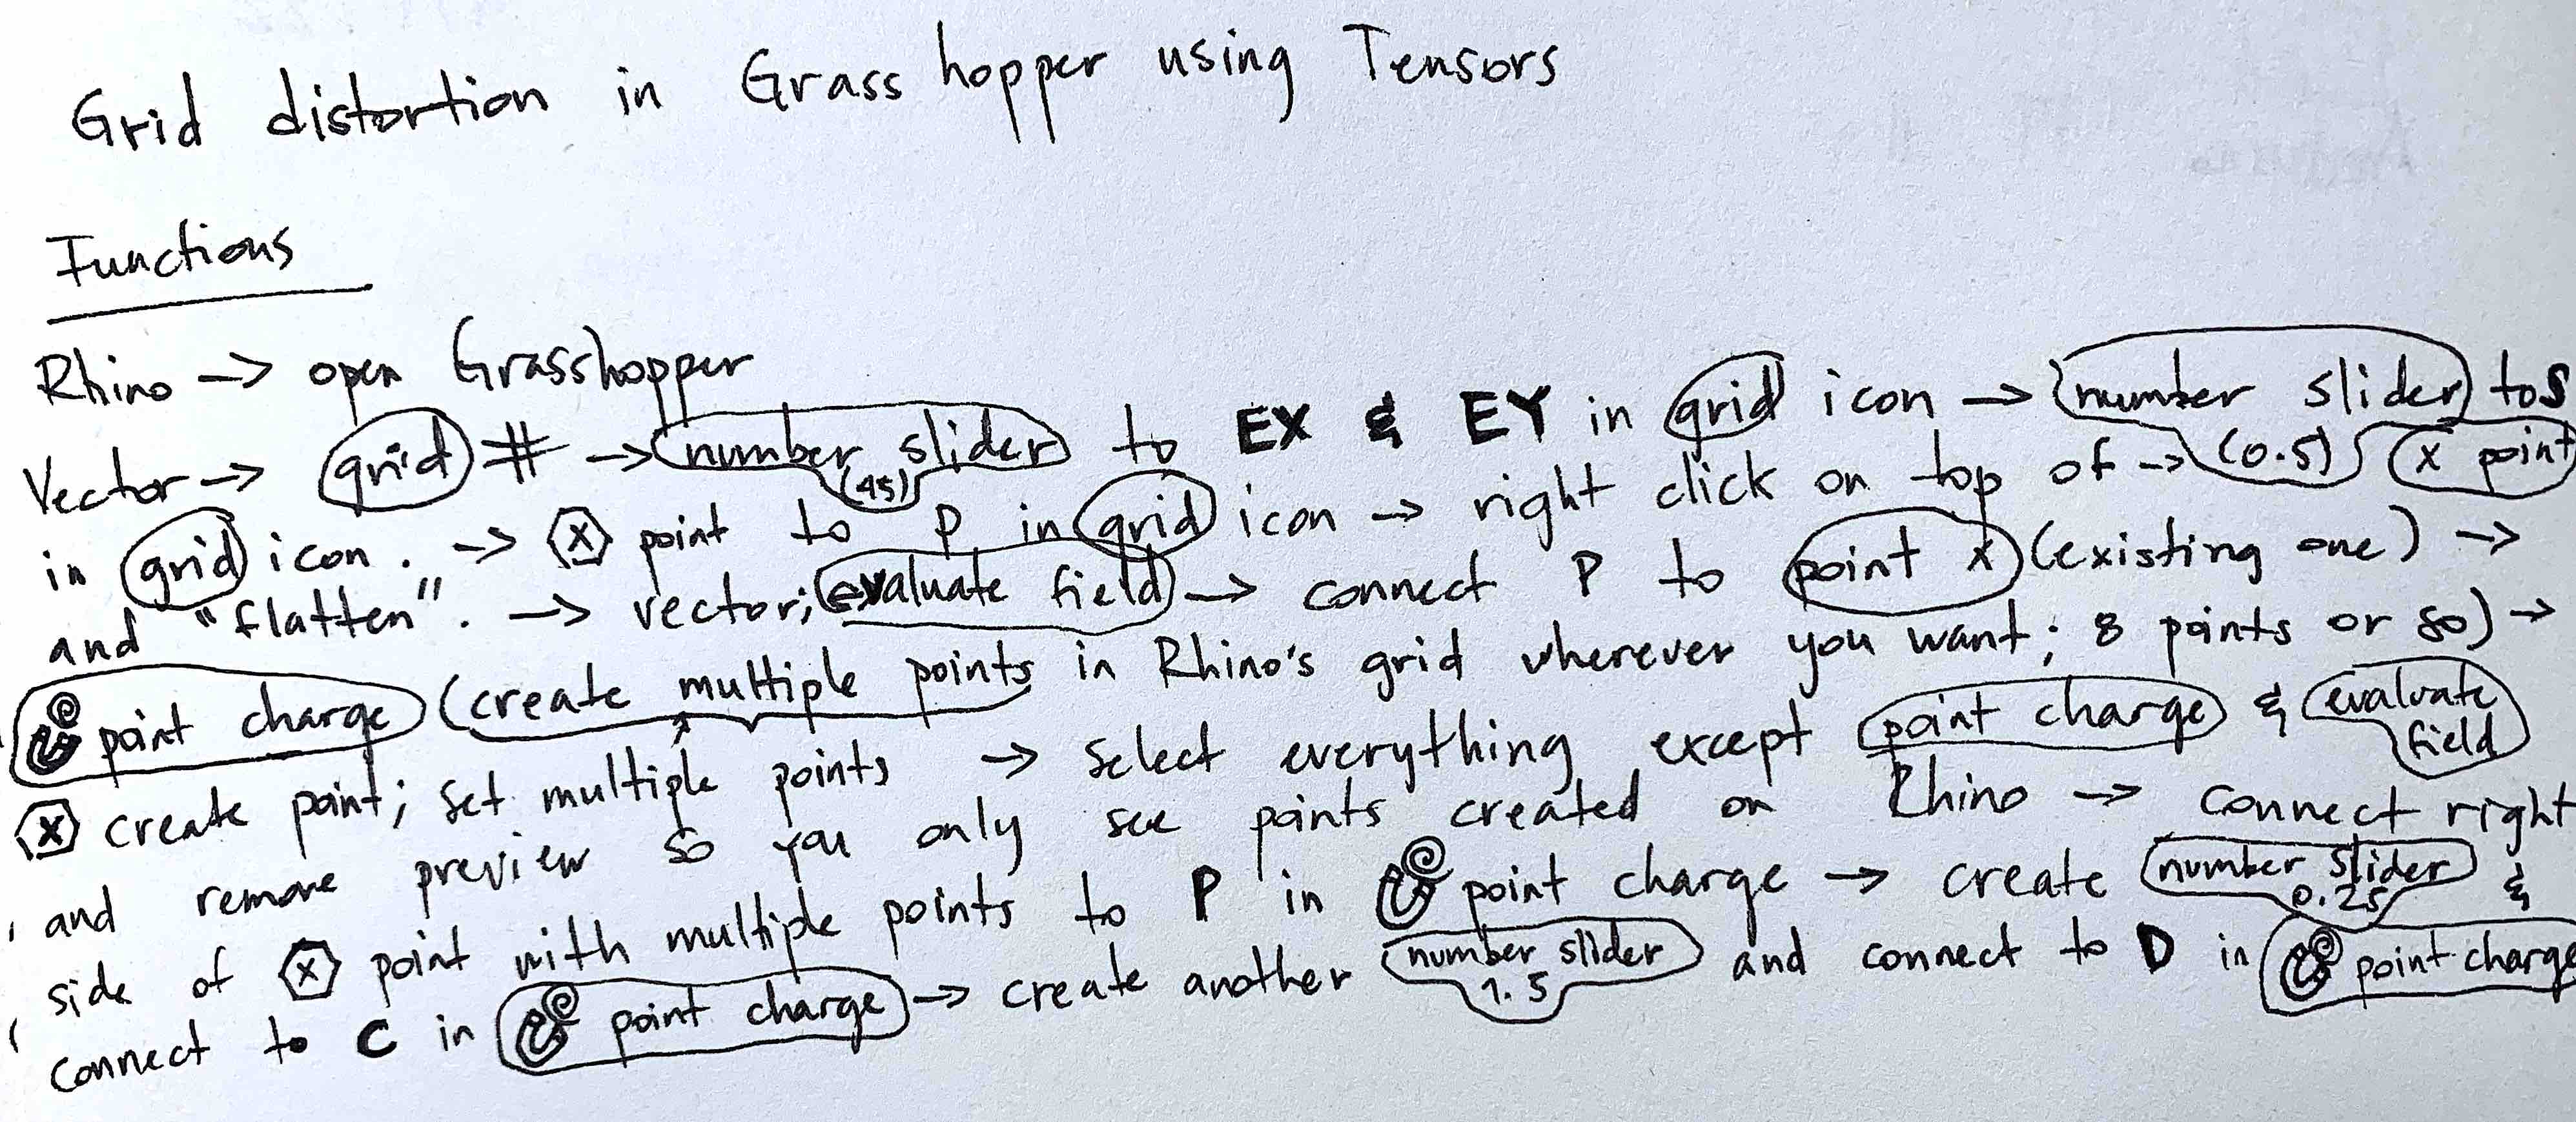 Grid distortion in Grasshopper using Tensors
Functions
Rhino → open Grasshopper
Vector → grid # → number slider (45) to EX & EY in grid icon → number slider (0.5) to S
in grid icon. → X point to P in grid icon → right click on top of → X point
and "flatten". → vector; evaluate field → connect P to point X (existing one) →
point charge (create multiple points in Rhino's grid wherever you want; 8 points or so) →
X create point; set multiple points → select everything except point charge & evaluate field
and remove preview so you only see points created on Rhino → connect right
side of X point with multiple points to P in point charge → create number slider 0.25 &
connect to C in point charge → create another number slider 1.5 and connect to D in point charge